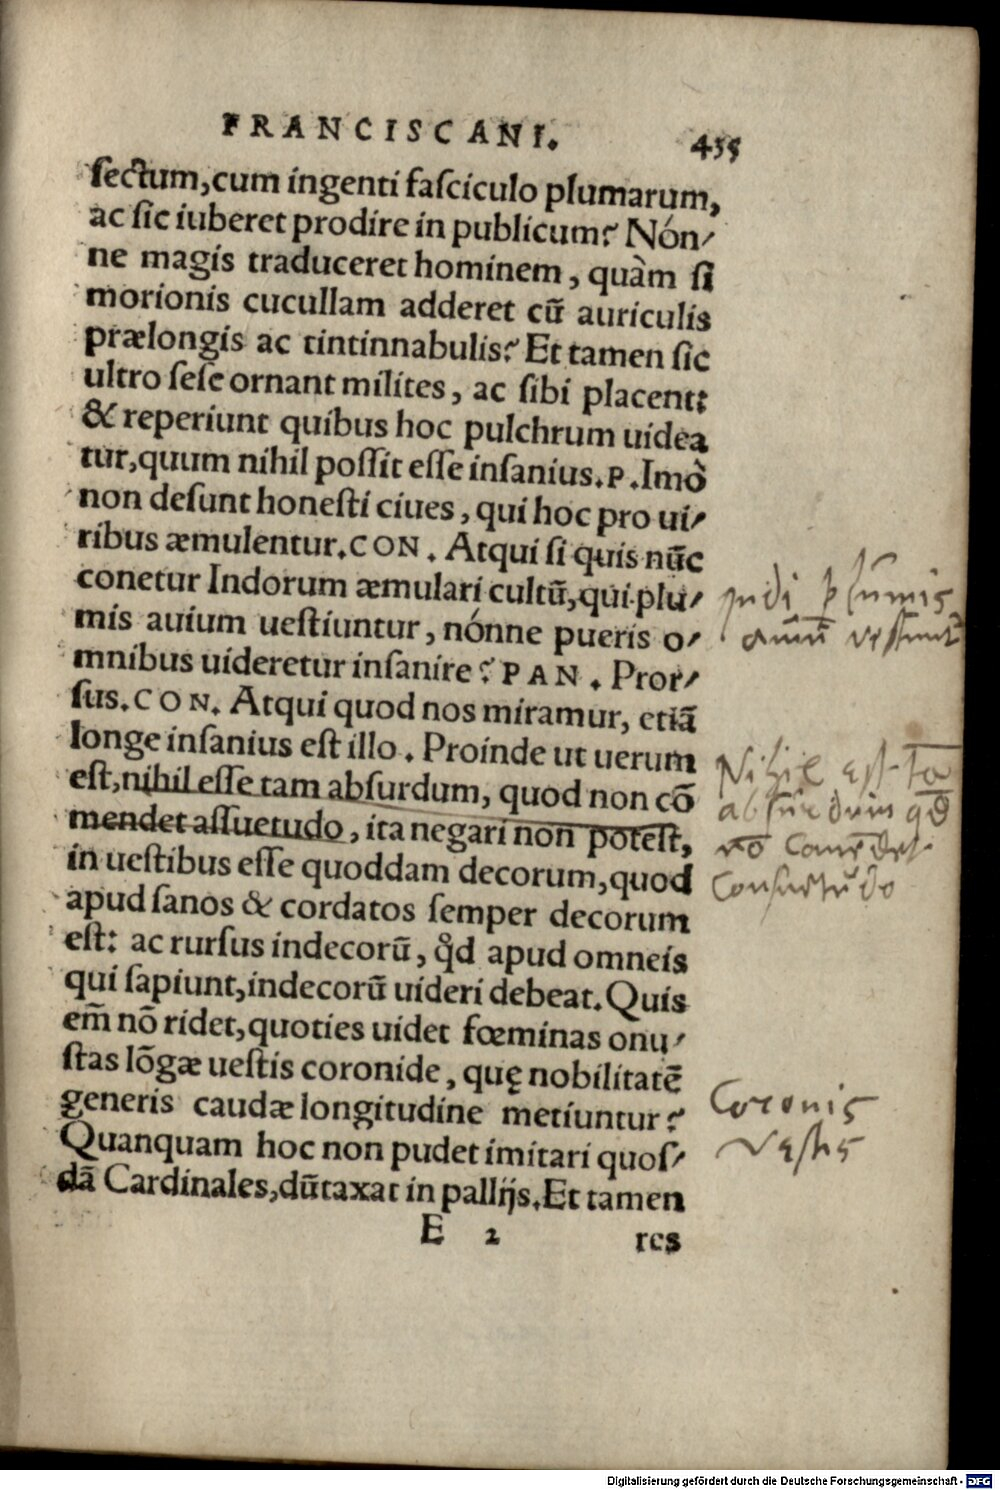 FRANCISCANI. 435
sectum,cum ingenti fasciculo plumarum,
ac sic iuberet prodire in publicum? Nón-
ne magis traduceret hominem, quàm si
morionis cucullam adderet cū auriculis
prælongis ac tintinnabulis? Et tamen sic
ultro sese ornant milites, ac sibi placent:
& reperiunt quibus hoc pulchrum uidea
tur,quum nihil possit esse insanius.P.Imò
non desunt honesti ciues, qui hoc pro ui-
ribus æmulentur.CON. Atqui si quis nūc
conetur Indorum æmulari cultū,qui plu-
mis auium uestiuntur, nónne pueris o-
mnibus uideretur insanire? PAN. Pror-
sus.CON. Atqui quod nos miramur, etiā
longe insanius est illo. Proinde ut uerum
est,nihil esse tam absurdum, quod non cō
mendet assuetudo, ita negari non potest,
in uestibus esse quoddam decorum,quod
apud sanos & cordatos semper decorum
est: ac rursus indecorū, qd apud omneis
qui sapiunt,indecorū uideri debeat.Quis
em̄ nō ridet,quoties uidet fœminas onu-
stas lōgæ uestis coronide, quę nobilitatē
generis caudæ longitudine metiuntur?
Quanquam hoc non pudet imitari quos-
dā Cardinales,dūtaxat in pallijs.Et tamen
E 2 res
Indi plumis
auiū vestiunt
Nihil est tā
absurdum qd
nō comēdet
Consuetudo
Coronis
Vestis
Digitalisierung gefördert durch die Deutsche Forschungsgemeinschaft - DFG